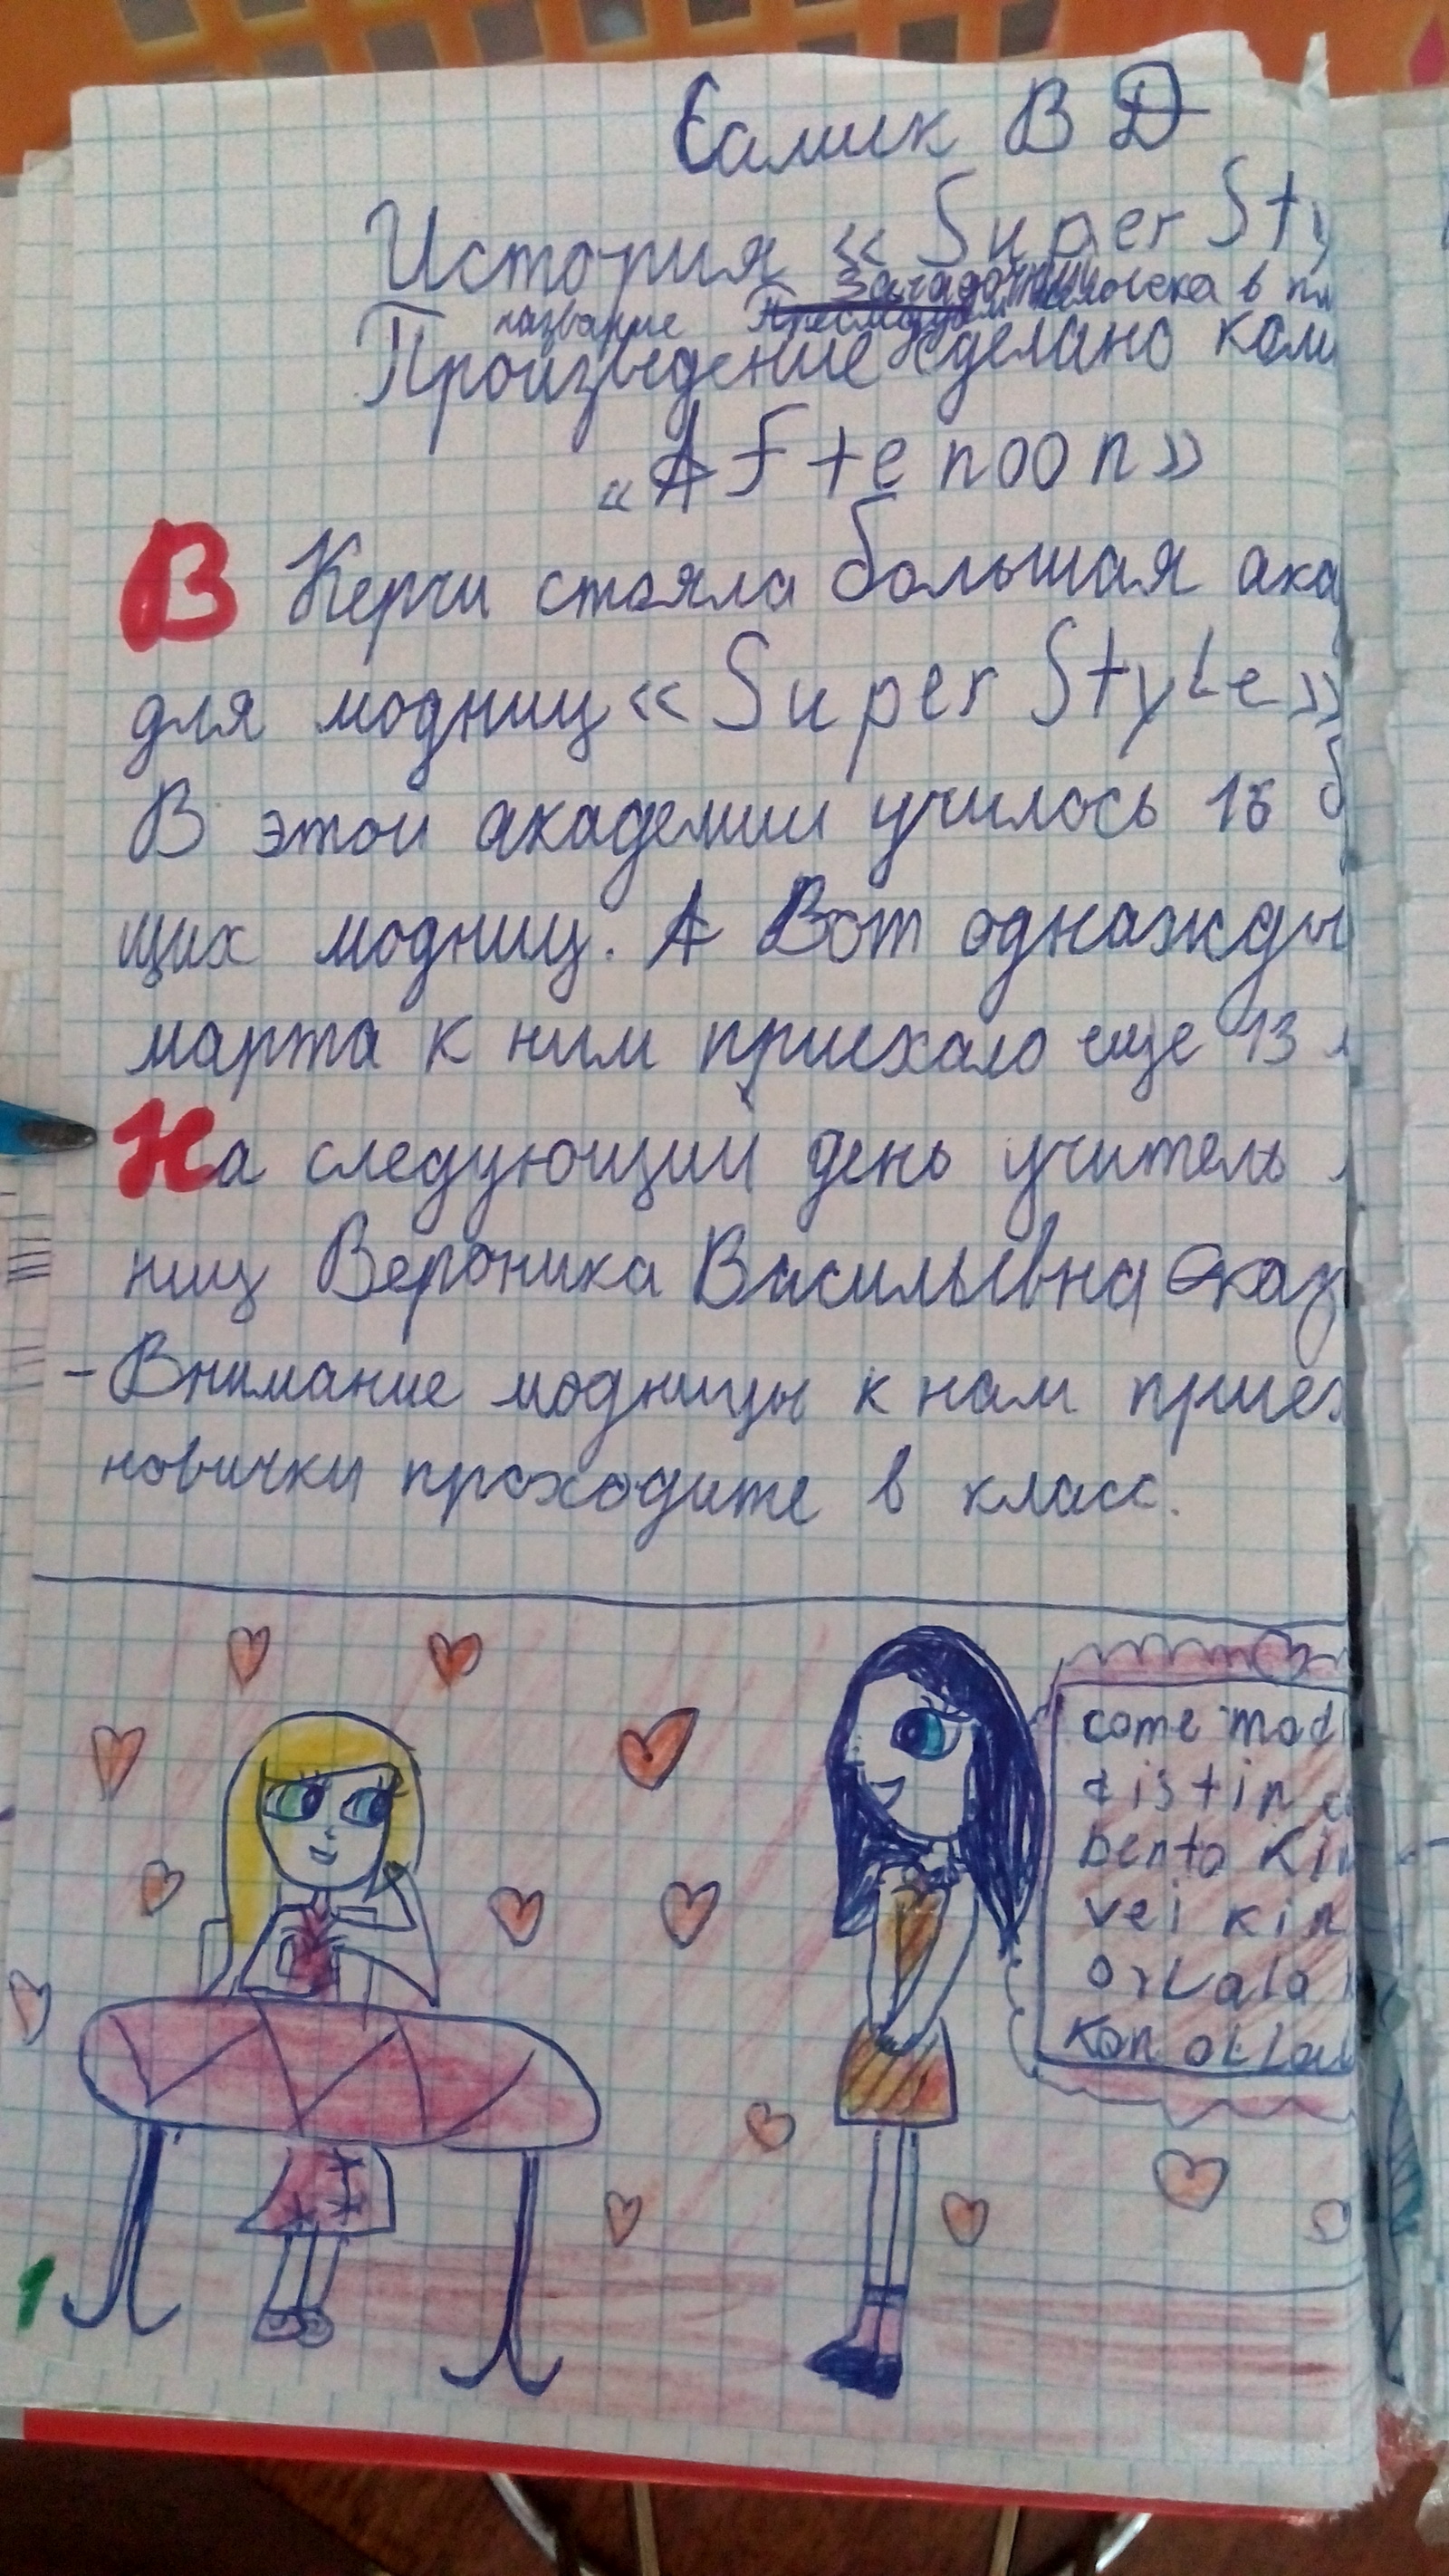 Салик В Д
История «Super Sty
Загадочный человека в пл
название
Произведение сделано ком
«Aftenoon»
В Керчи стояла большая ака
для модниц «Super Style»
В этой академии училось 18 б
щих модниц. А Вот однажды
марта к ним приехало еще 13
На следующий день учитель
ниц Вероника Васильевна сказ
- Внимание модницы к нам приех
новички проходите в класс.
come mod
distin c
bento kin
vei kin
orlala
kon ollau
1